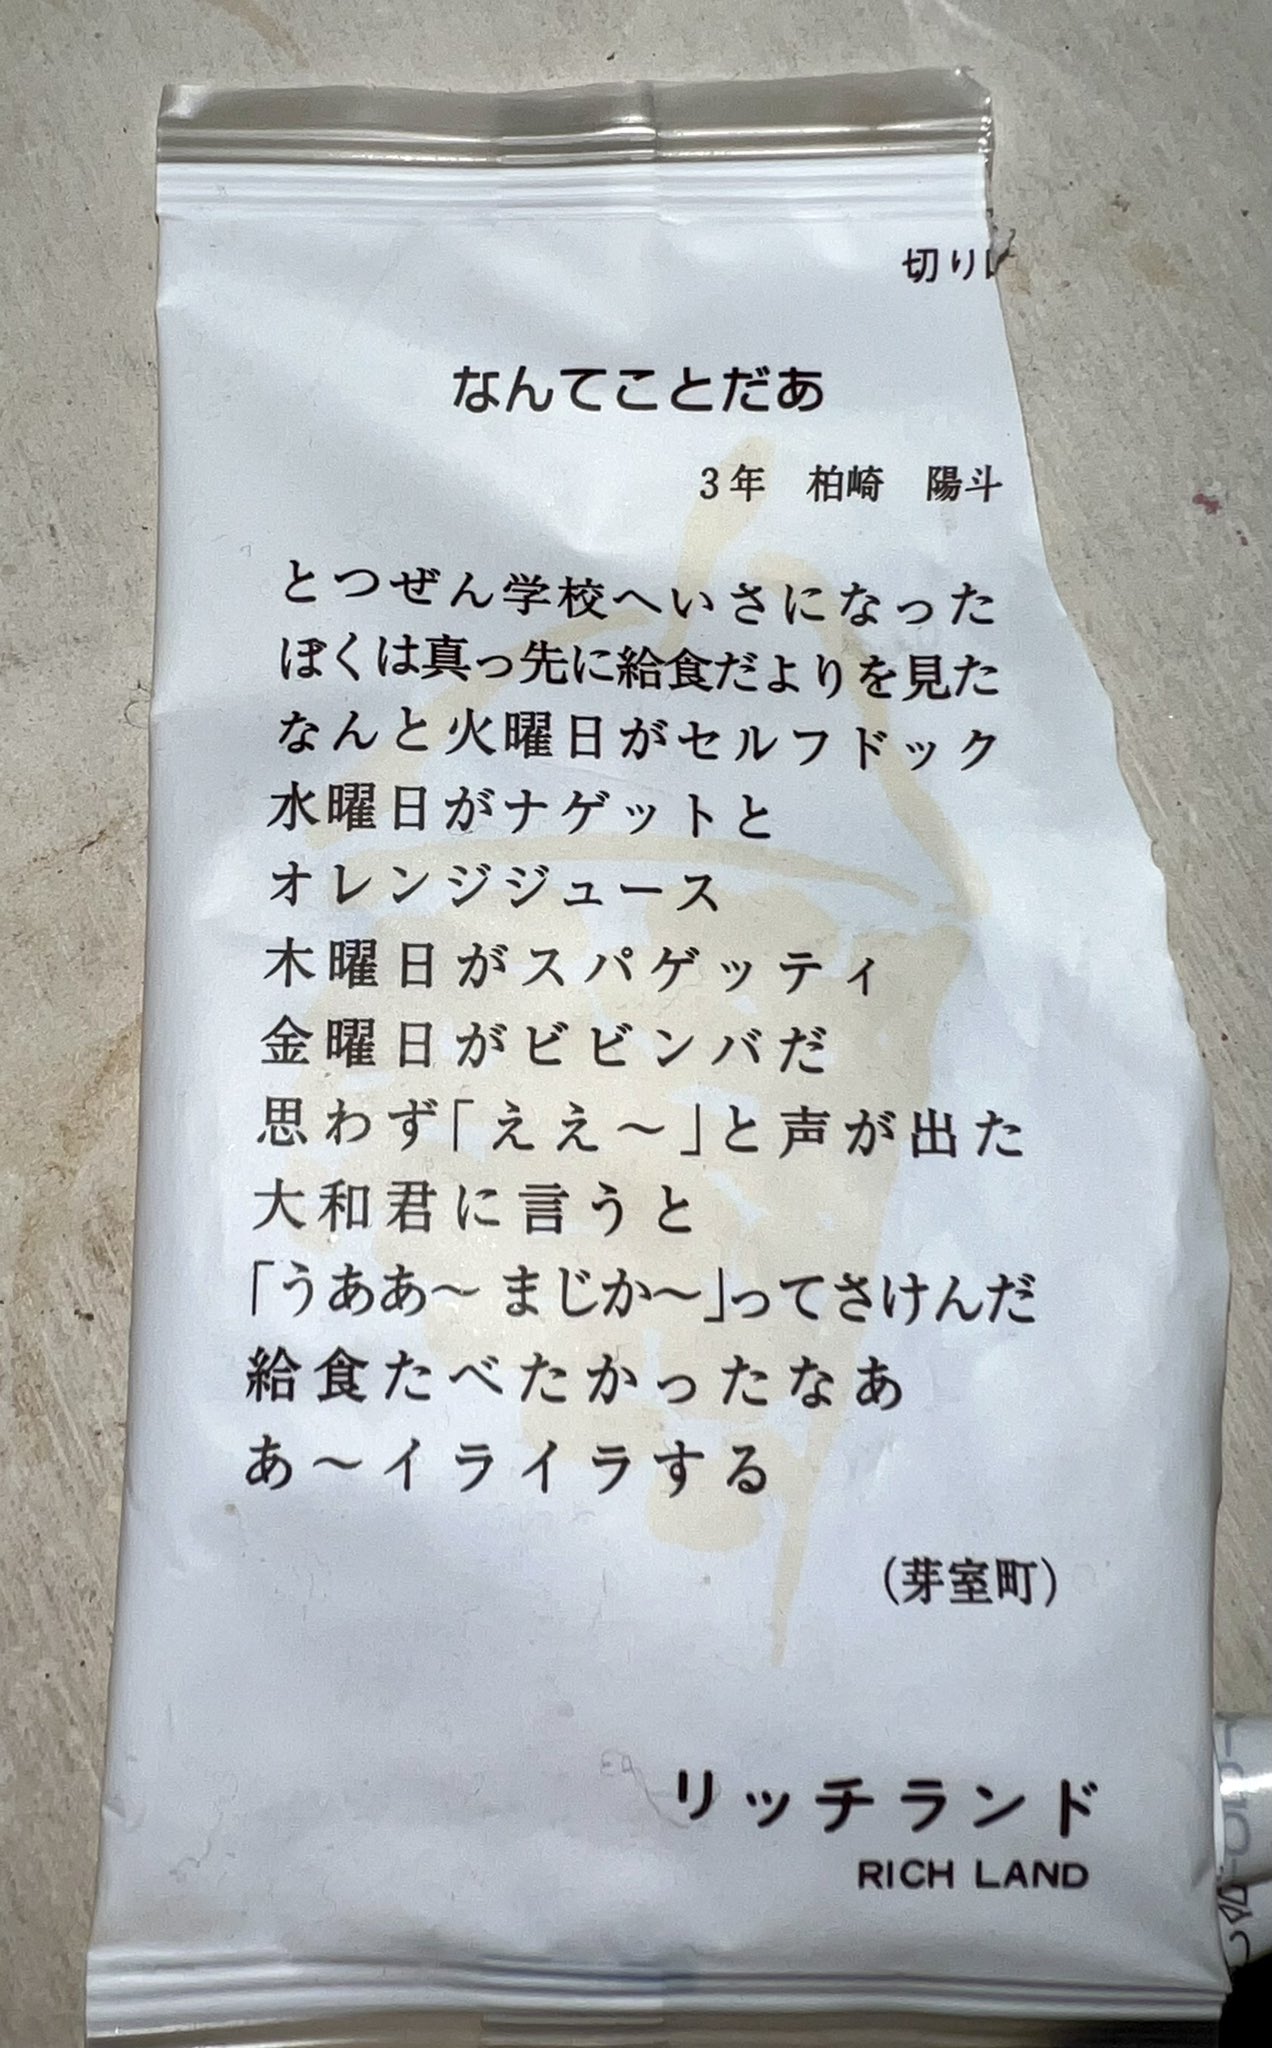 切り
なんてことだあ
3年 柏崎 陽斗
とつぜん学校へいさになった
ぼくは真っ先に給食だよりを見た
なんと火曜日がセルフドック
水曜日がナゲットと
オレンジジュース
木曜日がスパゲッティ
金曜日がビビンバだ
思わず「ええ〜」と声が出た
大和君に言うと
「うああ〜 まじか〜」ってさけんだ
給食たべたかったなあ
あ〜イライラする
(芽室町)
リッチランド
RICH LAND